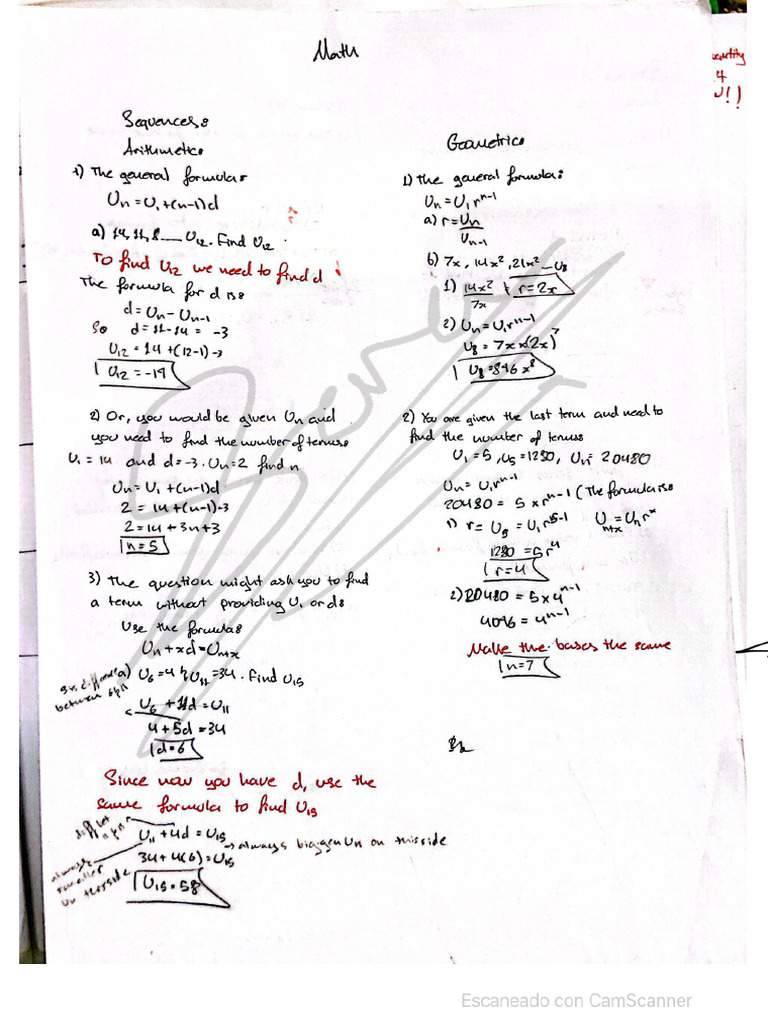 Math
Sequences:
Arithmetic:
1) The general formula:
Un = U1 + (n-1)d
a) 14, 11, 8 __ U12. Find U12
To find U12 we need to find d
The formula for d is:
d = Un - Un-1
So d = 11 - 14 = -3
U12 = 14 + (12-1) -3
U12 = -19
2) Or, you would be given Un and
you need to find the number of terms:
U1 = 14 and d = -3. Un = 2 find n
Un = U1 + (n-1)d
2 = 14 + (n-1) -3
2 = 14 + 3n + 3
n = 5
3) The question might ask you to find
a term without providing U1 or d:
Use the formula:
Un + xd = Un+x
a) U6 = 4 & U11 = 34. Find U15
between
U6 + 11d = U11
4 + 5d = 34
d = 6
Since now you have d, use the
same formula to find U15
U11 + 4d = U15
always bigger Un on this side
34 + 4(6) = U15
always
smaller
Un this side
U15 = 58
Geometric:
1) The general formula:
Un = U1 r^n-1
a) r = Un
Un-1
b) 7x, 14x², 21x² __ U8
1) 14x² r = 2x
7x
2) Un = U1 r^n-1
U8 = 7x × (2x)^7
U8 = 896x^8
2) You are given the last term and need to
find the number of terms
U1 = 5, U5 = 1280, Un = 20480
Un = U1 r^n-1
20480 = 5 × r^n-1 (The formula is:
1) r = U5 = U1 r^5-1 Un+x = Un r^x
1280 = 5r^4
r = 4
2) 20480 = 5 × 4^n-1
4096 = 4^n-1
Make the bases the same
n = 7
4
!!
Escaneado con CamScanner